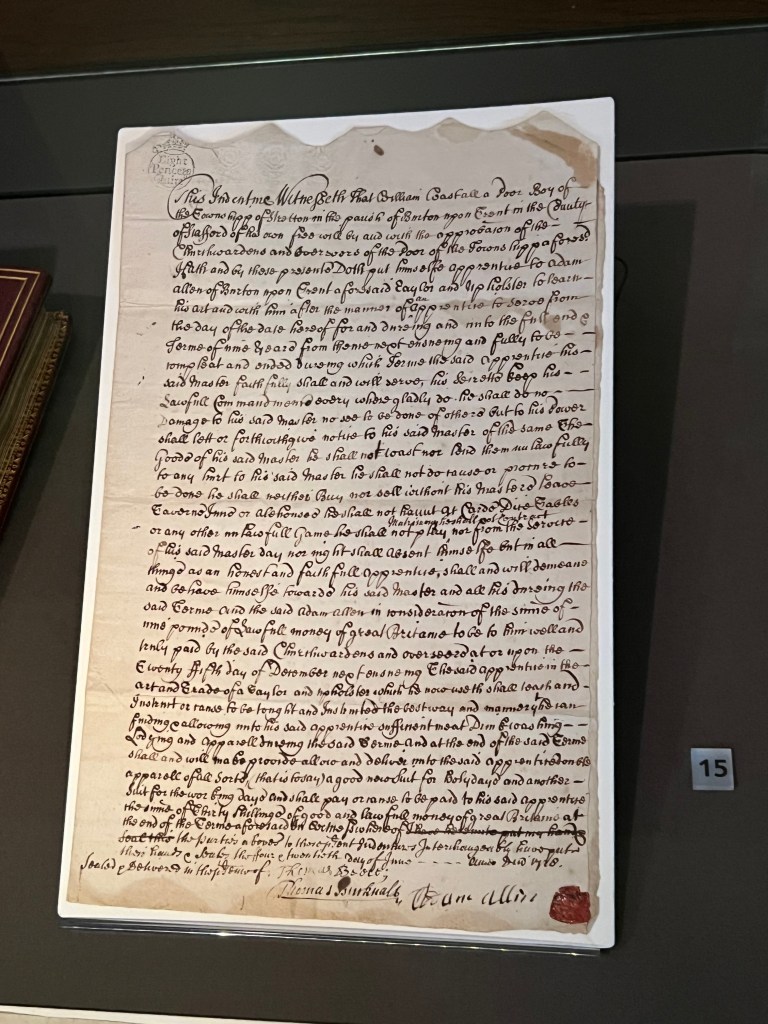 Eight
Pence
This Indenture Witnesseth That William Coastall a Poor Boy of
the Townshipp of Stretton in the parish of Burton upon Trent in the County
of Stafford of his own free will by and with the approbaion of the
Churchwardens and overseers of the Poor of the Townshipp aforesd
Hath and by these presents Doth put himselfe apprentice to Adam
allen of Burton upon Trent aforesaid Taylor and Upholster to learn
his art and with him after the manner of an apprentice to serve from
the day of the date hereof for and dureing and unto the full end &
Terme of nine Years from thence next ensueing and fully to be
compleat and ended dureing which Terme the said Apprentice his
said Master faithfully shall and will serve his secretts keep his
Lawfull Commandments every where gladly do he shall do no
Damage to his said Master nor see to be done of others But to his Power
shall lett or forthwith give notice to his said Master of the same The
Goods of his said Master he shall not wast nor lend them unlawfully
to any hurt to his said Master he shall not do cause or procure to
be done he shall neither Buy nor sell without his Masters leave
Taverns Inns or Alehouses he shall not haunt At Cards Dice Tables
Matrimony he shall not Contract
or any other unlawfull Game he shall not play nor from the service
of his said Master day nor night shall absent himselfe but in all
things as an honest and faithfull apprentice, shall and will demeane
and behave himselfe towards his said Master and all his dureing the
said Terme And the said Adam Allen in consideraton of the summe of
nine pounds of Lawfull money of great Britaine to be to him well and
truly paid by the said Churchwardens and overseers at or upon the
Twenty ffifth day of December next ensueing The said apprentice in the
art and Trade of a Taylor and upholster which he now useth shall teach and
Instruct or cause to be tought and Instructed the best way and manner he can
finding & allowing unto his said apprentice sufficient meat Drink washing
Lodging and apparell dureing the said Terme And at the end of the said Terme
shall and will make provide allow and deliver unto the said apprentice double
apparell of all sorts (that is to say) a good new suit for Holydays and another
suit for the working days and shall pay or cause to be paid to his said apprentice
the summe of Thirty shillings of good and lawfull money of great Britaine at
the end of the Terme aforesaid In Witness whereof I have hereunto put my hand &
seal the parties above to these Indentures Interchangeably have put
their hands & seals the four & twentieth day of June Anno Dni 1718.
Sealed & Delivered in the presence of Thomas
Thomas Adam Allin
15